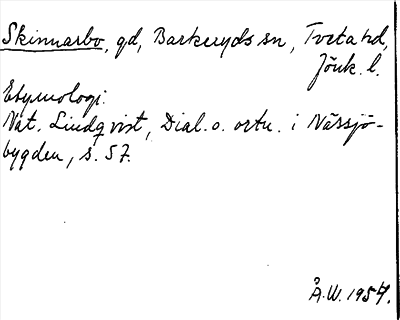 Skinnarbo, gd, Barkeryds sn, Tveta hd,
Jönk. l.
Etymologi:
Nat. Lindqvist, Dial. o. ortn. i Nässjö-
bygden, s. 57.
Å.W. 1957.